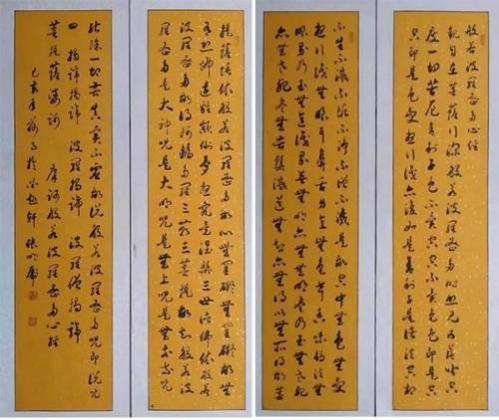 般若波羅蜜多心經
觀自在菩薩行深般若波羅蜜多時照見五蘊皆空
度一切苦厄舍利子色不異空空不異色色即是空
空即是色受想行識亦復如是舍利子是諸法空相
不生不滅不垢不淨不增不減是故空中無色無受
想行識無眼耳鼻舌身意無色聲香味觸法無
眼界乃至無意識界無無明亦無無明盡乃至無老死
亦無老死盡無苦集滅道無智亦無得以無所得故菩
提薩埵依般若波羅蜜多故心無罣礙無罣礙故無
有恐怖遠離顛倒夢想究竟涅槃三世諸佛依般若
波羅蜜多故得阿耨多羅三藐三菩提故知般若波
羅蜜多是大神咒是大明咒是無上咒是無等等咒
能除一切苦真實不虛故說般若波羅蜜多咒即說咒
曰 揭諦揭諦 波羅揭諦 波羅僧揭諦
菩提薩婆訶 摩訶般若波羅蜜多心經
己亥年 於 軒 張